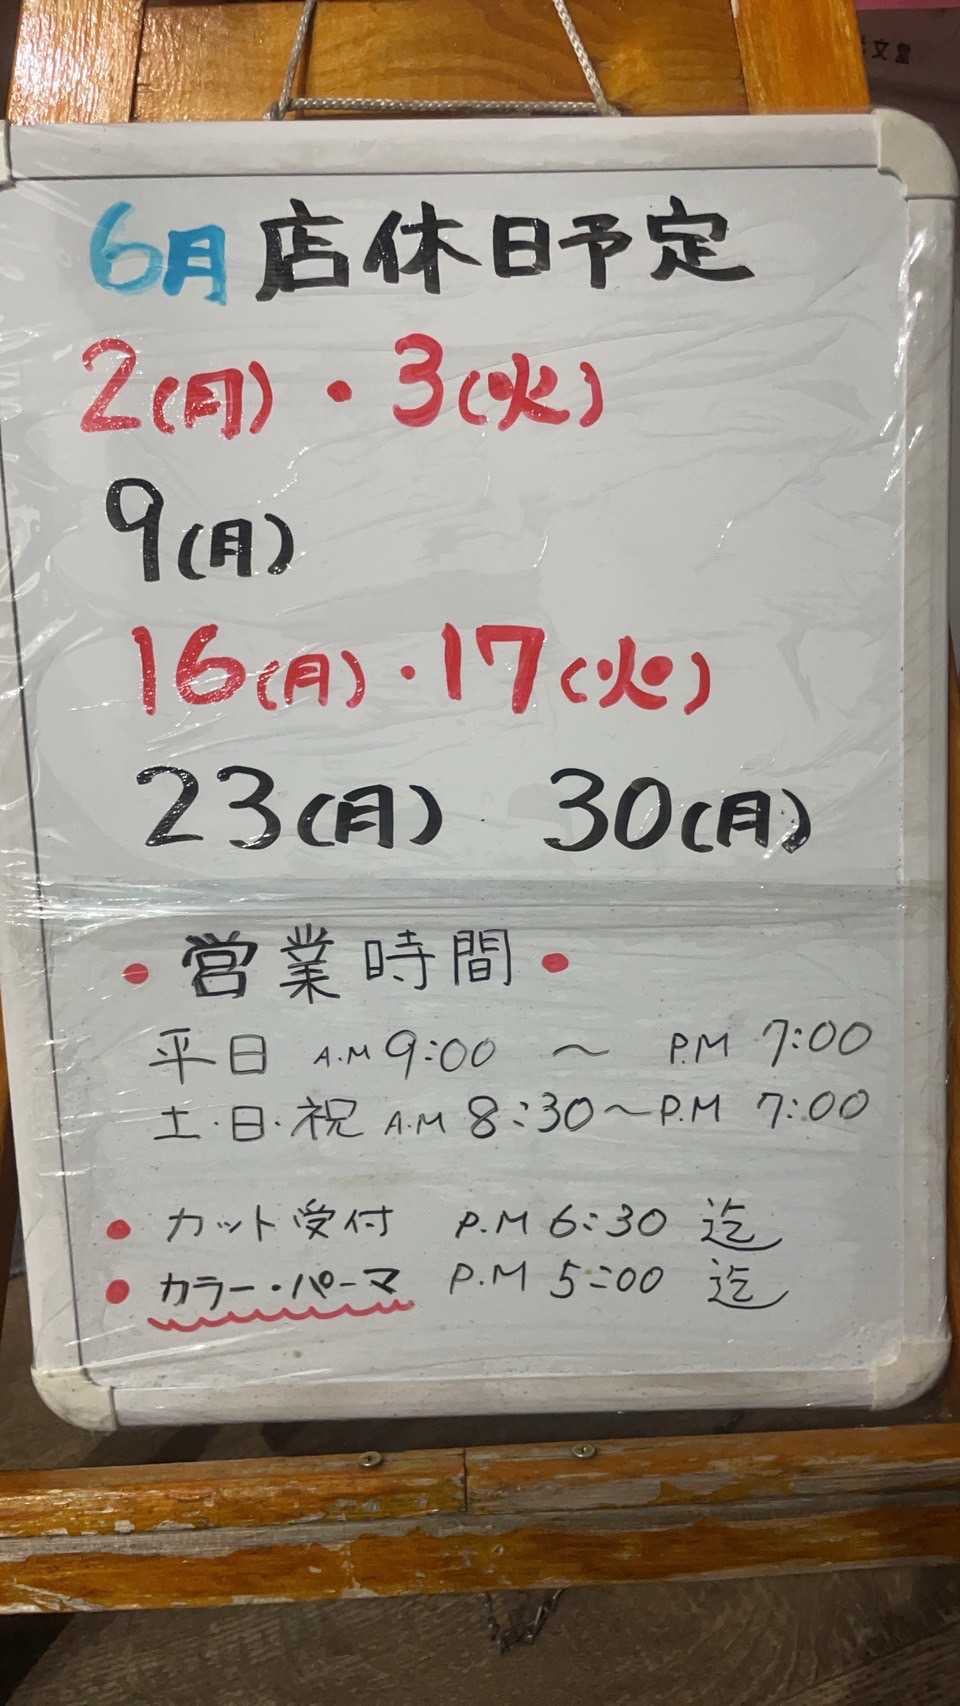 文堂
6月 店休日予定
2(月)・3(火)
9(月)
16(月)・17(火)
23(月) 30(月)
• 営業時間 •
平日 A.M 9:00 〜 P.M 7:00
土・日・祝 A.M 8:30〜P.M 7:00
• カット受付 P.M 6:30 迄
• カラー・パーマ P.M 5:00 迄